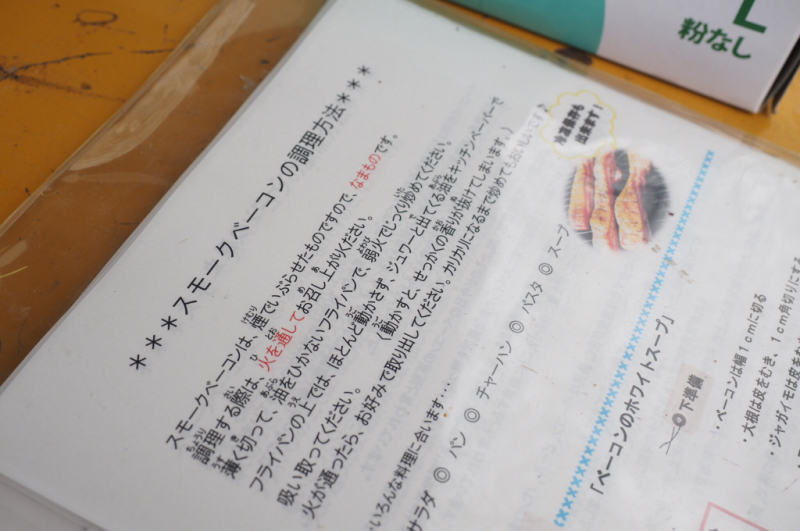 粉なし
L
***スモークベーコンの調理方法***
スモークベーコンは、煙でいぶらせたものですので、なまものです。
調理する際は、火を通してお召し上がりください。
薄く切って、油をひかないフライパンで、弱火でじっくり炒めてください。
フライパンの上では、ほとんど動かさず、ジュワーと出てくる油をキッチンペーパーで
吸い取ってください。
(動かすと、せっかくの香りが抜けてしまいます。)
火が通ったら、お好みで取り出してください。カリカリになるまで炒めてもおいしいです♪
冷凍保存も
出来ます!
いろんな料理に合います・・・
サラダ ◎ パン ◎ チャーハン ◎ パスタ ◎ スープ
「ベーコンのホワイトスープ」
下準備
・ベーコンは幅1cmに切る
・大根は皮をむき、1cm角切りにする
・ジャガイモは皮を